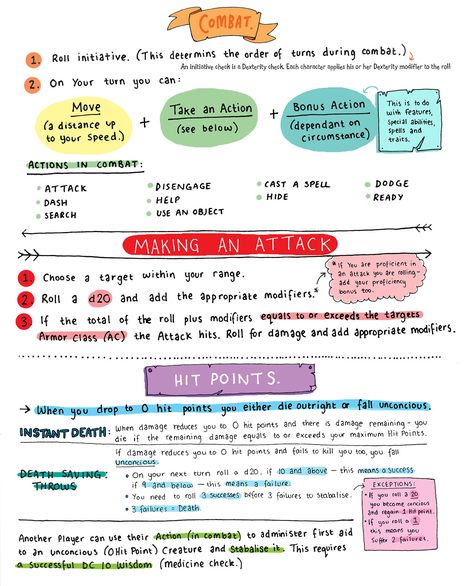 COMBAT.
1. Roll initiative. (This determins the order of turns during combat.)
An initiative check is a Dexterity check. Each character applies his or her Dexterity modifier to the roll
2. On Your turn you can:
Move
(a distance up
to your Speed.)
+
Take an Action
(see below)
+
Bonus Action
(dependant on
circumstance)
This is to do
with features,
special abilities,
spells and
traits.
ACTIONS IN COMBAT:
ATTACK
DASH
SEARCH
DISENGAGE
HELP
USE AN OBJECT
CAST A SPELL
HIDE
DODGE
READY
MAKING AN ATTACK
1. Choose a target within your range.
2. Roll a d20 and add the appropriate modifiers.*
*If You are proficient in
an attack you are rolling-
add your proficiency
bonus too.
3. If the total of the roll plus modifiers equals to or exceeds the targets
Armor Class (AC) the Attack hits. Roll for damage and add appropriate modifiers.
HIT POINTS.
→ When you drop to 0 hit points you either die outright or fall unconcious.
INSTANT DEATH: When damage reduces you to 0 hit points and there is damage remaining - you
die if the remaining damage equals to or exceeds your maximum Hit Points.
DEATH SAVING
THROWS
If damage reduces you to 0 Hit points and fails to kill you too, you fall
Unconcious.
• On your next turn roll a d20, if 10 and above - this means a success
if 9 and below - this means a failure.
• You need to roll 3 successes before 3 failures to Stabalise.
• 3 failures = Death.
EXCEPTIONS:
• If you roll a 20
you become concious
and regain 1 Hit point.
• If you roll a 1
this means you
suffer 2 failures.
Another Player can use their Action (in combat) to administer first aid
to an unconcious (0 Hit Point) Creature and Stabalise it. This requires
a successful DC 10 Wisdom (medicine check.)